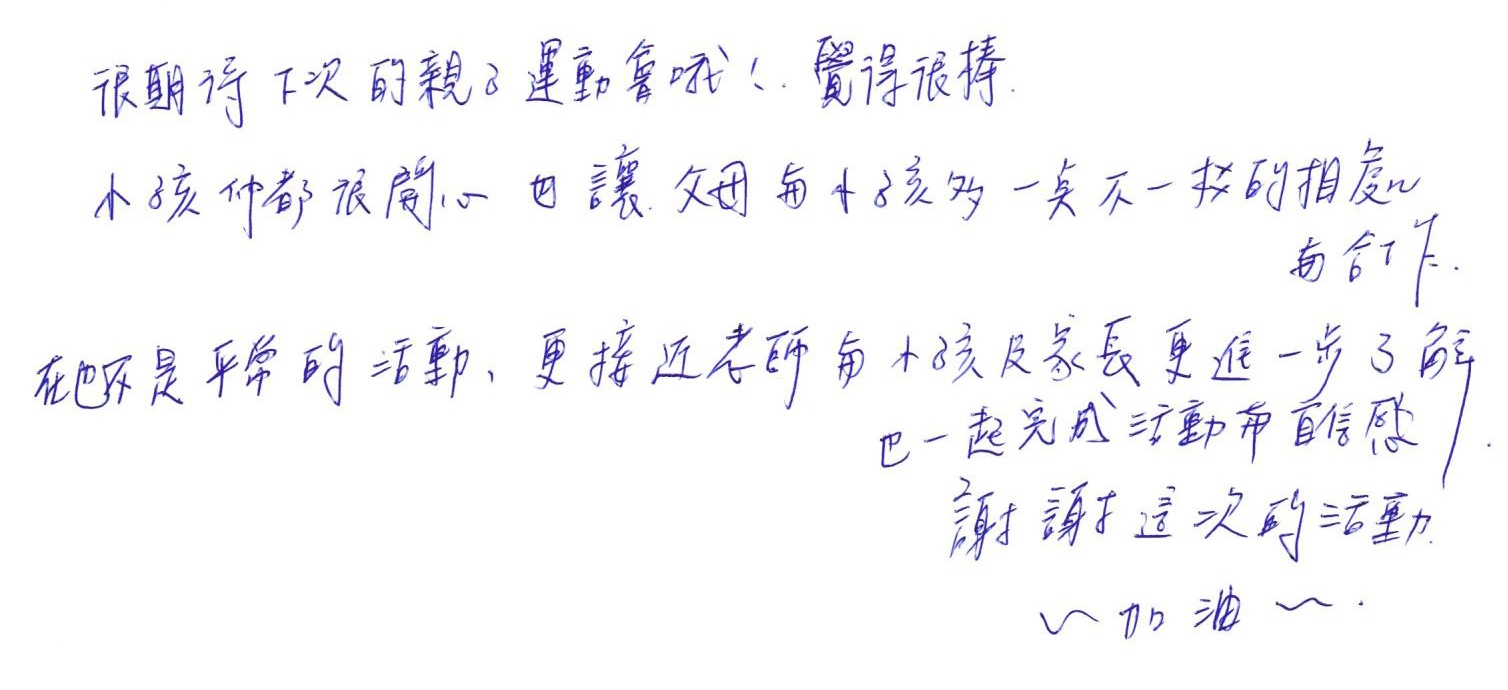 很期待下次的親子運動會哦！.覺得很棒.
小孩仲都很開心也讓.父母每小孩多一点不一樣的相處~
每合作.
在也不是平常的活動、更接近老師每小孩及家長更進一步了解
也一起完成活動希自信感.
謝謝這次的活動.
~加油~.